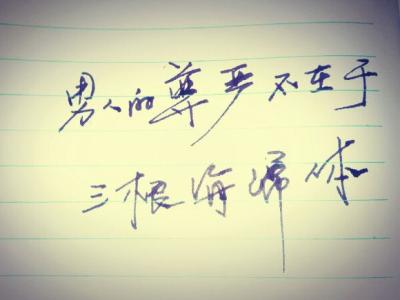 男人的尊严不在于
三根海绵体